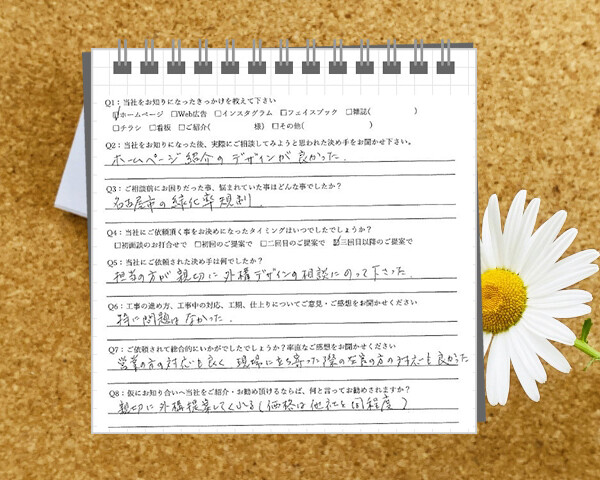 Q1：当社をお知りになったきっかけを教えて下さい
☑ホームページ □Web広告 □インスタグラム □フェイスブック □雑誌( )
□チラシ □看板 □ご紹介( 様) □その他( )
Q2：当社をお知りになった後、実際にご相談してみようと思われた決め手をお聞かせ下さい。
ホームページ紹介のデザインが良かった.
Q3：ご相談前にお困りだった事、悩まれていた事はどんな事でしたか？
名古屋市の緑化率規制
Q4：当社にご依頼頂く事をお決めになったタイミングはいつでしたでしょうか？
□初面談のお打合せで □初回のご提案で □二回目のご提案で ☑三回目以降のご提案で
Q5：当社にご依頼された決め手は何でしたか？
担当の方が親切に外構デザインの相談にのって下さった.
Q6：工事の進め方、工事中の対応、工期、仕上りについてご意見・ご感想をお聞かせください
特に問題はなかった.
Q7：ご依頼されて総合的にいかがでしたでしょうか？率直なご感想をお聞かせください
営業の方の対応も良く 現場に立ち寄った際の の方の対応も良かった
Q8：仮にお知り合いへ当社をご紹介・お勧め頂けるならば、何と言ってお勧めされますか？
親切に外構提案してくれる(価格は他社と同程度)